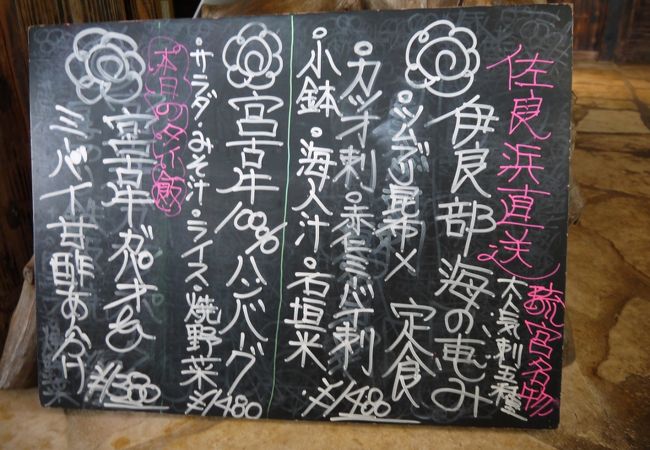 佐良浜直送
大人気刺五種盛
伊良部海の恵み
・ツムブリ昆布〆 定食
・カツオ刺・赤仁ミーバイ刺
・小鉢・海人汁・石垣米 ¥1480
宮古牛100%ハンバーグ
・サラダ・みそ汁・ライス・焼野菜 ¥1480
本日の
宮古牛ガパオ&
ミーバイ甘酢あんかけ ¥1380